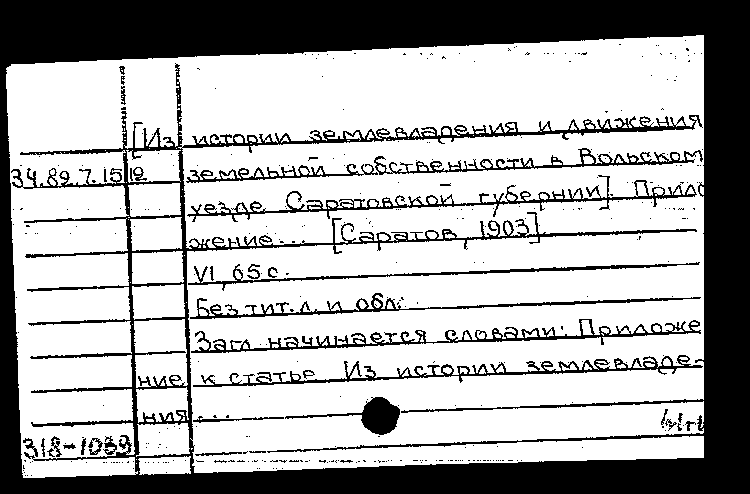 [Из истории землевладения и движения
34.89.7.15 земельной собственности в Вольском
уезде Саратовской губернии]. Прило
жение... [Саратов, 1903]
VI, 65 с.
Без тит. л. и обл.
Загл. начинается словами: Приложе
ние к статье Из истории землевладе-
ния...
318-1039